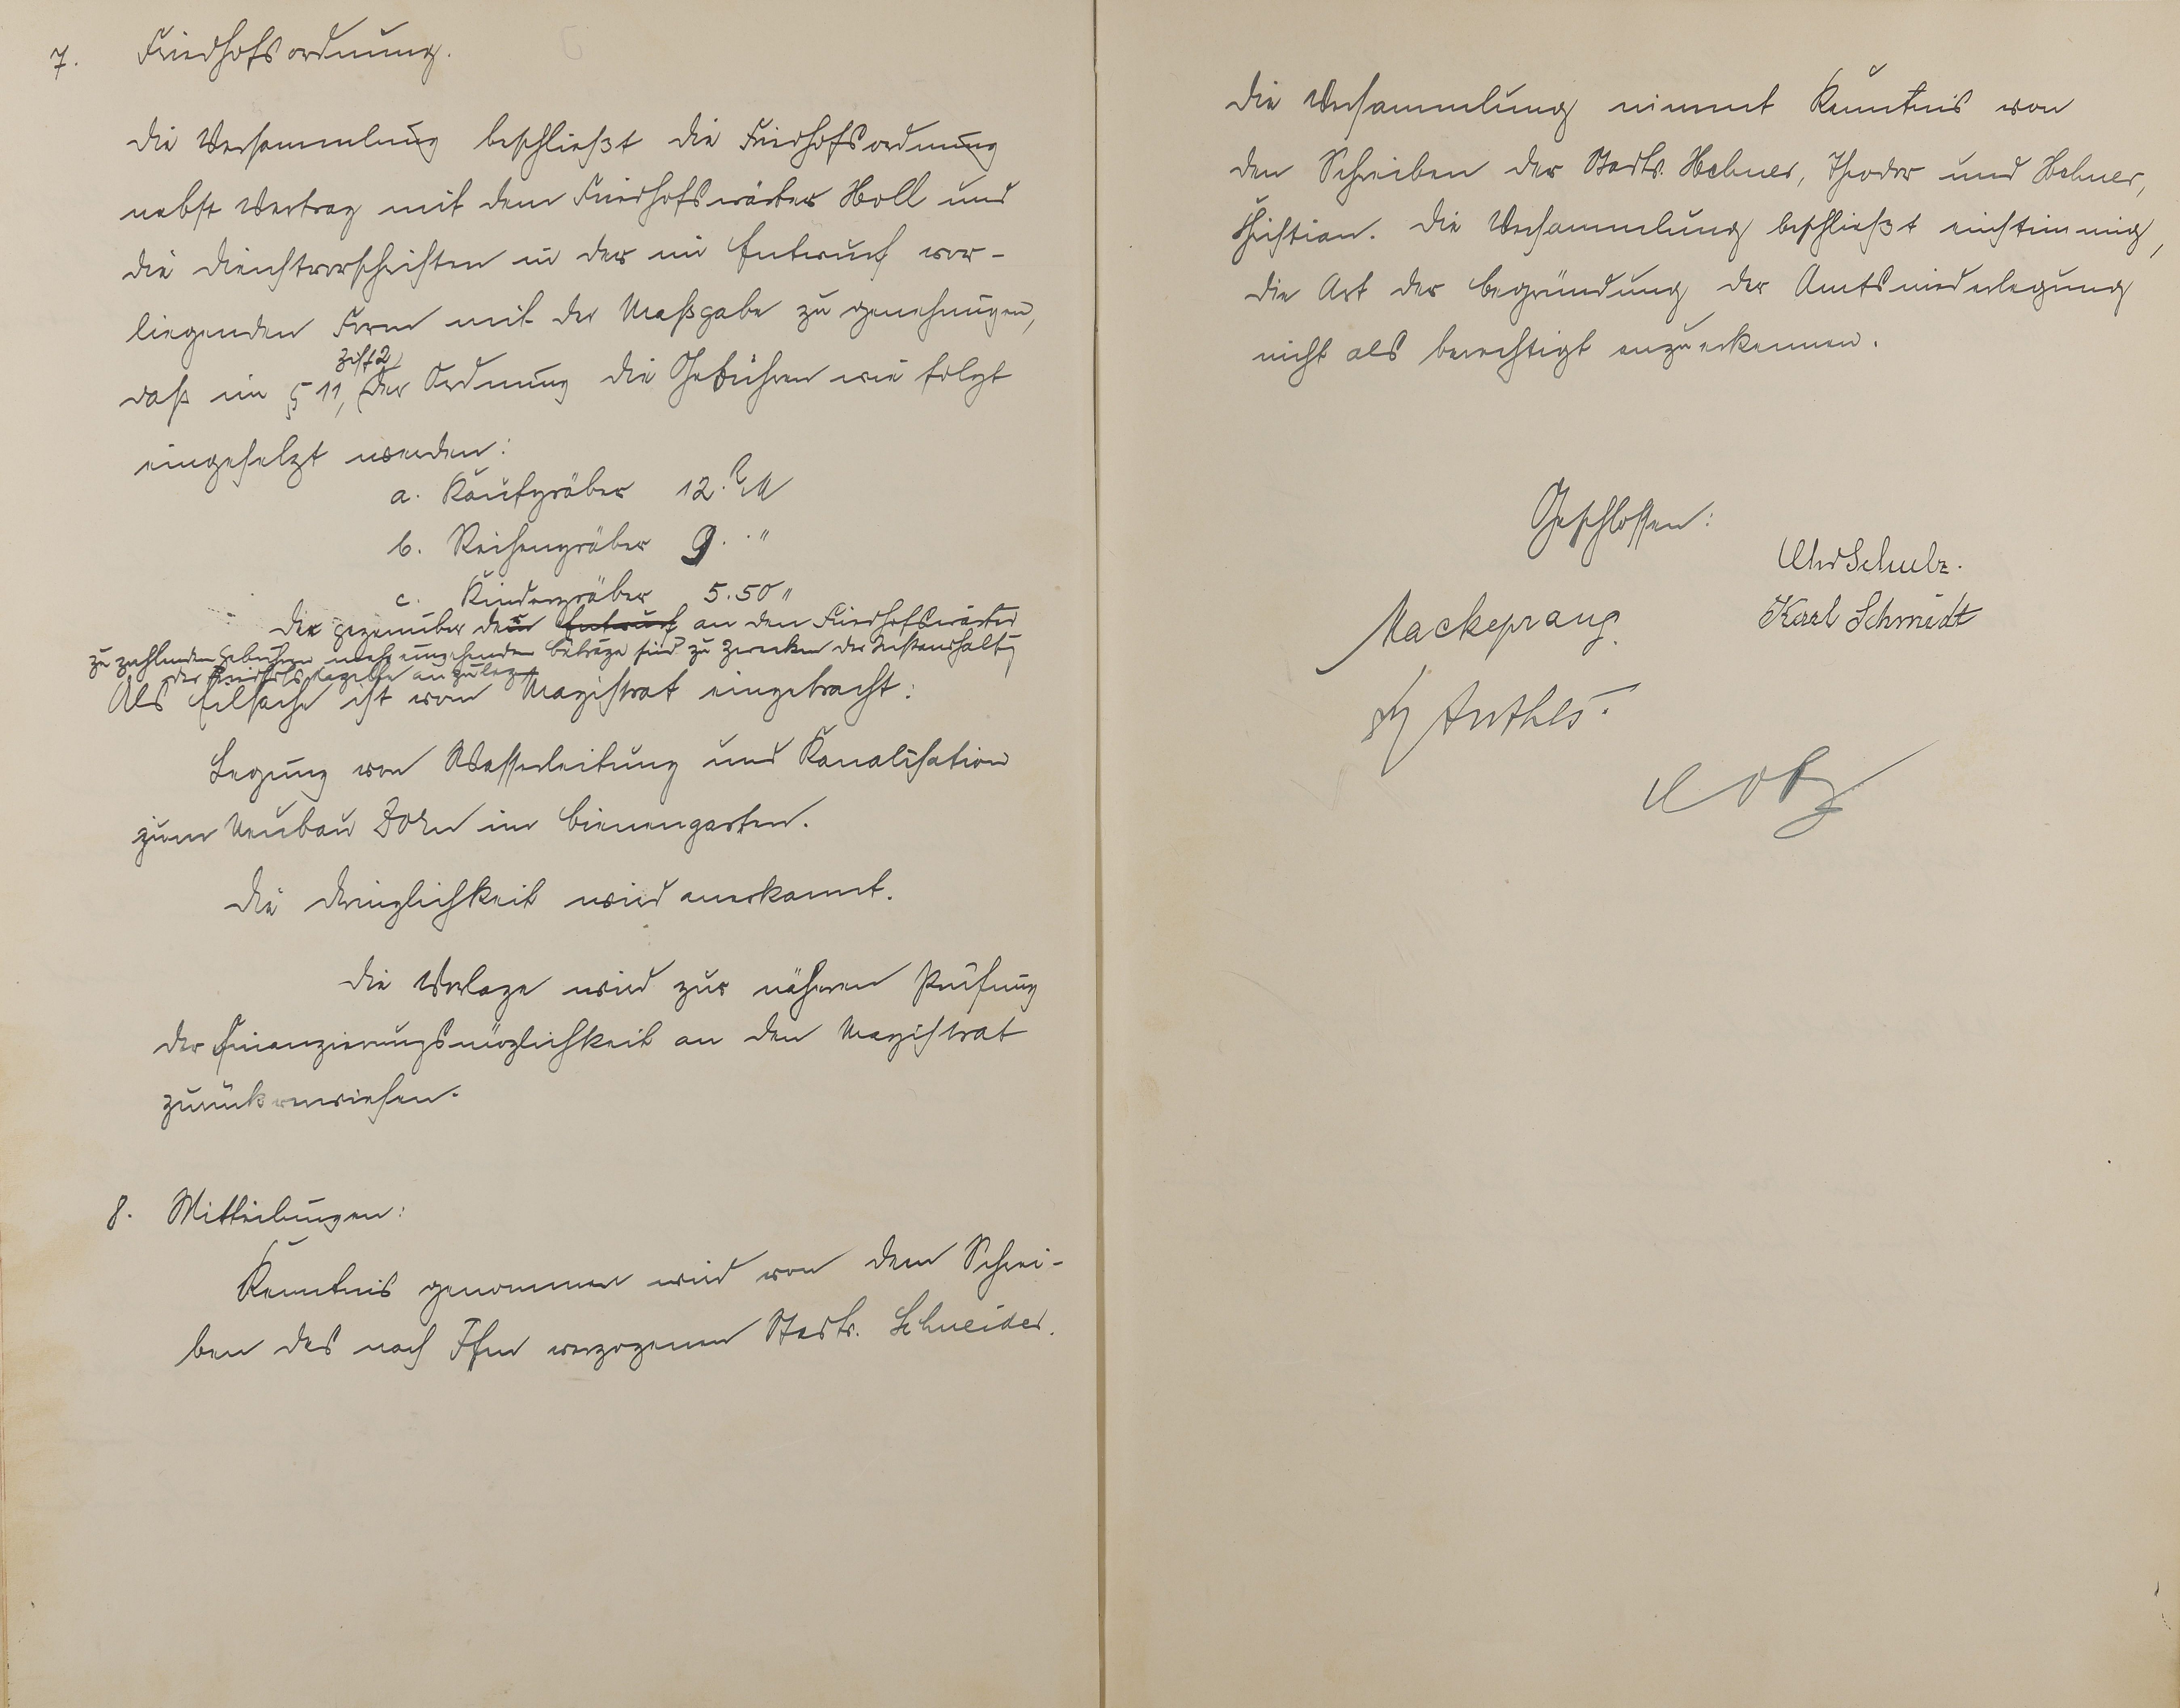 7. Friedhofsordnung.
Die Versammlung beschließt die Friedhofsordnung
nebst Vertrag mit dem Friedhofswärter Holl und
die Dienstvorschriften in der im Entwurf vor-
liegenden Form mit der Maßgabe zu genehmigen,
Ziff 2
daß im § 11, der Ordnung die Gebühren wie folgt
eingesetzt werden:
a. Kaufgräber 12. RM
b. Reihengräber 9. "
c. Kindergräber 5.50 "
Die gegenüber den Entwurf an den Friedhofswärter
zu zahlenden Gebühren mehr eingehenden Beträge sind zu Zwecken der Instandhaltg
der Friedhofskapelle anzulegen
Als Eilsache ist vom Magistrat eingebracht:
Legung von Wasserleitung und Kanalisation
zum Neubau Dorn im Bienengarten.
Die Dringlichkeit wird anerkannt.
Die Vorlage wird zur näheren Prüfung
der Finanzierungsmöglichkeit an den Magistrat
zurückverwiesen.
8. Mitteilungen:
Kenntnis genommen wird von dem Schrei-
ben des nach Ffm verzogenen Stadtv. Schneider.
Die Versammlung nimmt Kenntnis von
den Schreiben der Stadtv. Hebner, Theodor und Hebner,
Christian. Die Versammlung beschließt einstimmig,
die Art der Begründung der Amtsniederlegung
nicht als berechtigt anzuerkennen.
Geschlossen:
Schulz.
Mackeprang.
Karl Schmidt
Anthes.